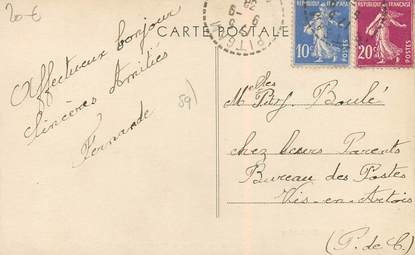 20 €
CARTE POSTALE
REPUBLIQUE FRANÇAISE
10c
POSTES
REPUBLIQUE FRANÇAISE
20c
POSTES
Affectueux bonjour
Sincères Amitiés
Fernande
59
Boulé
chez leurs Parents
Bureau des Postes
Vis-en-Artois
(P. de C.)